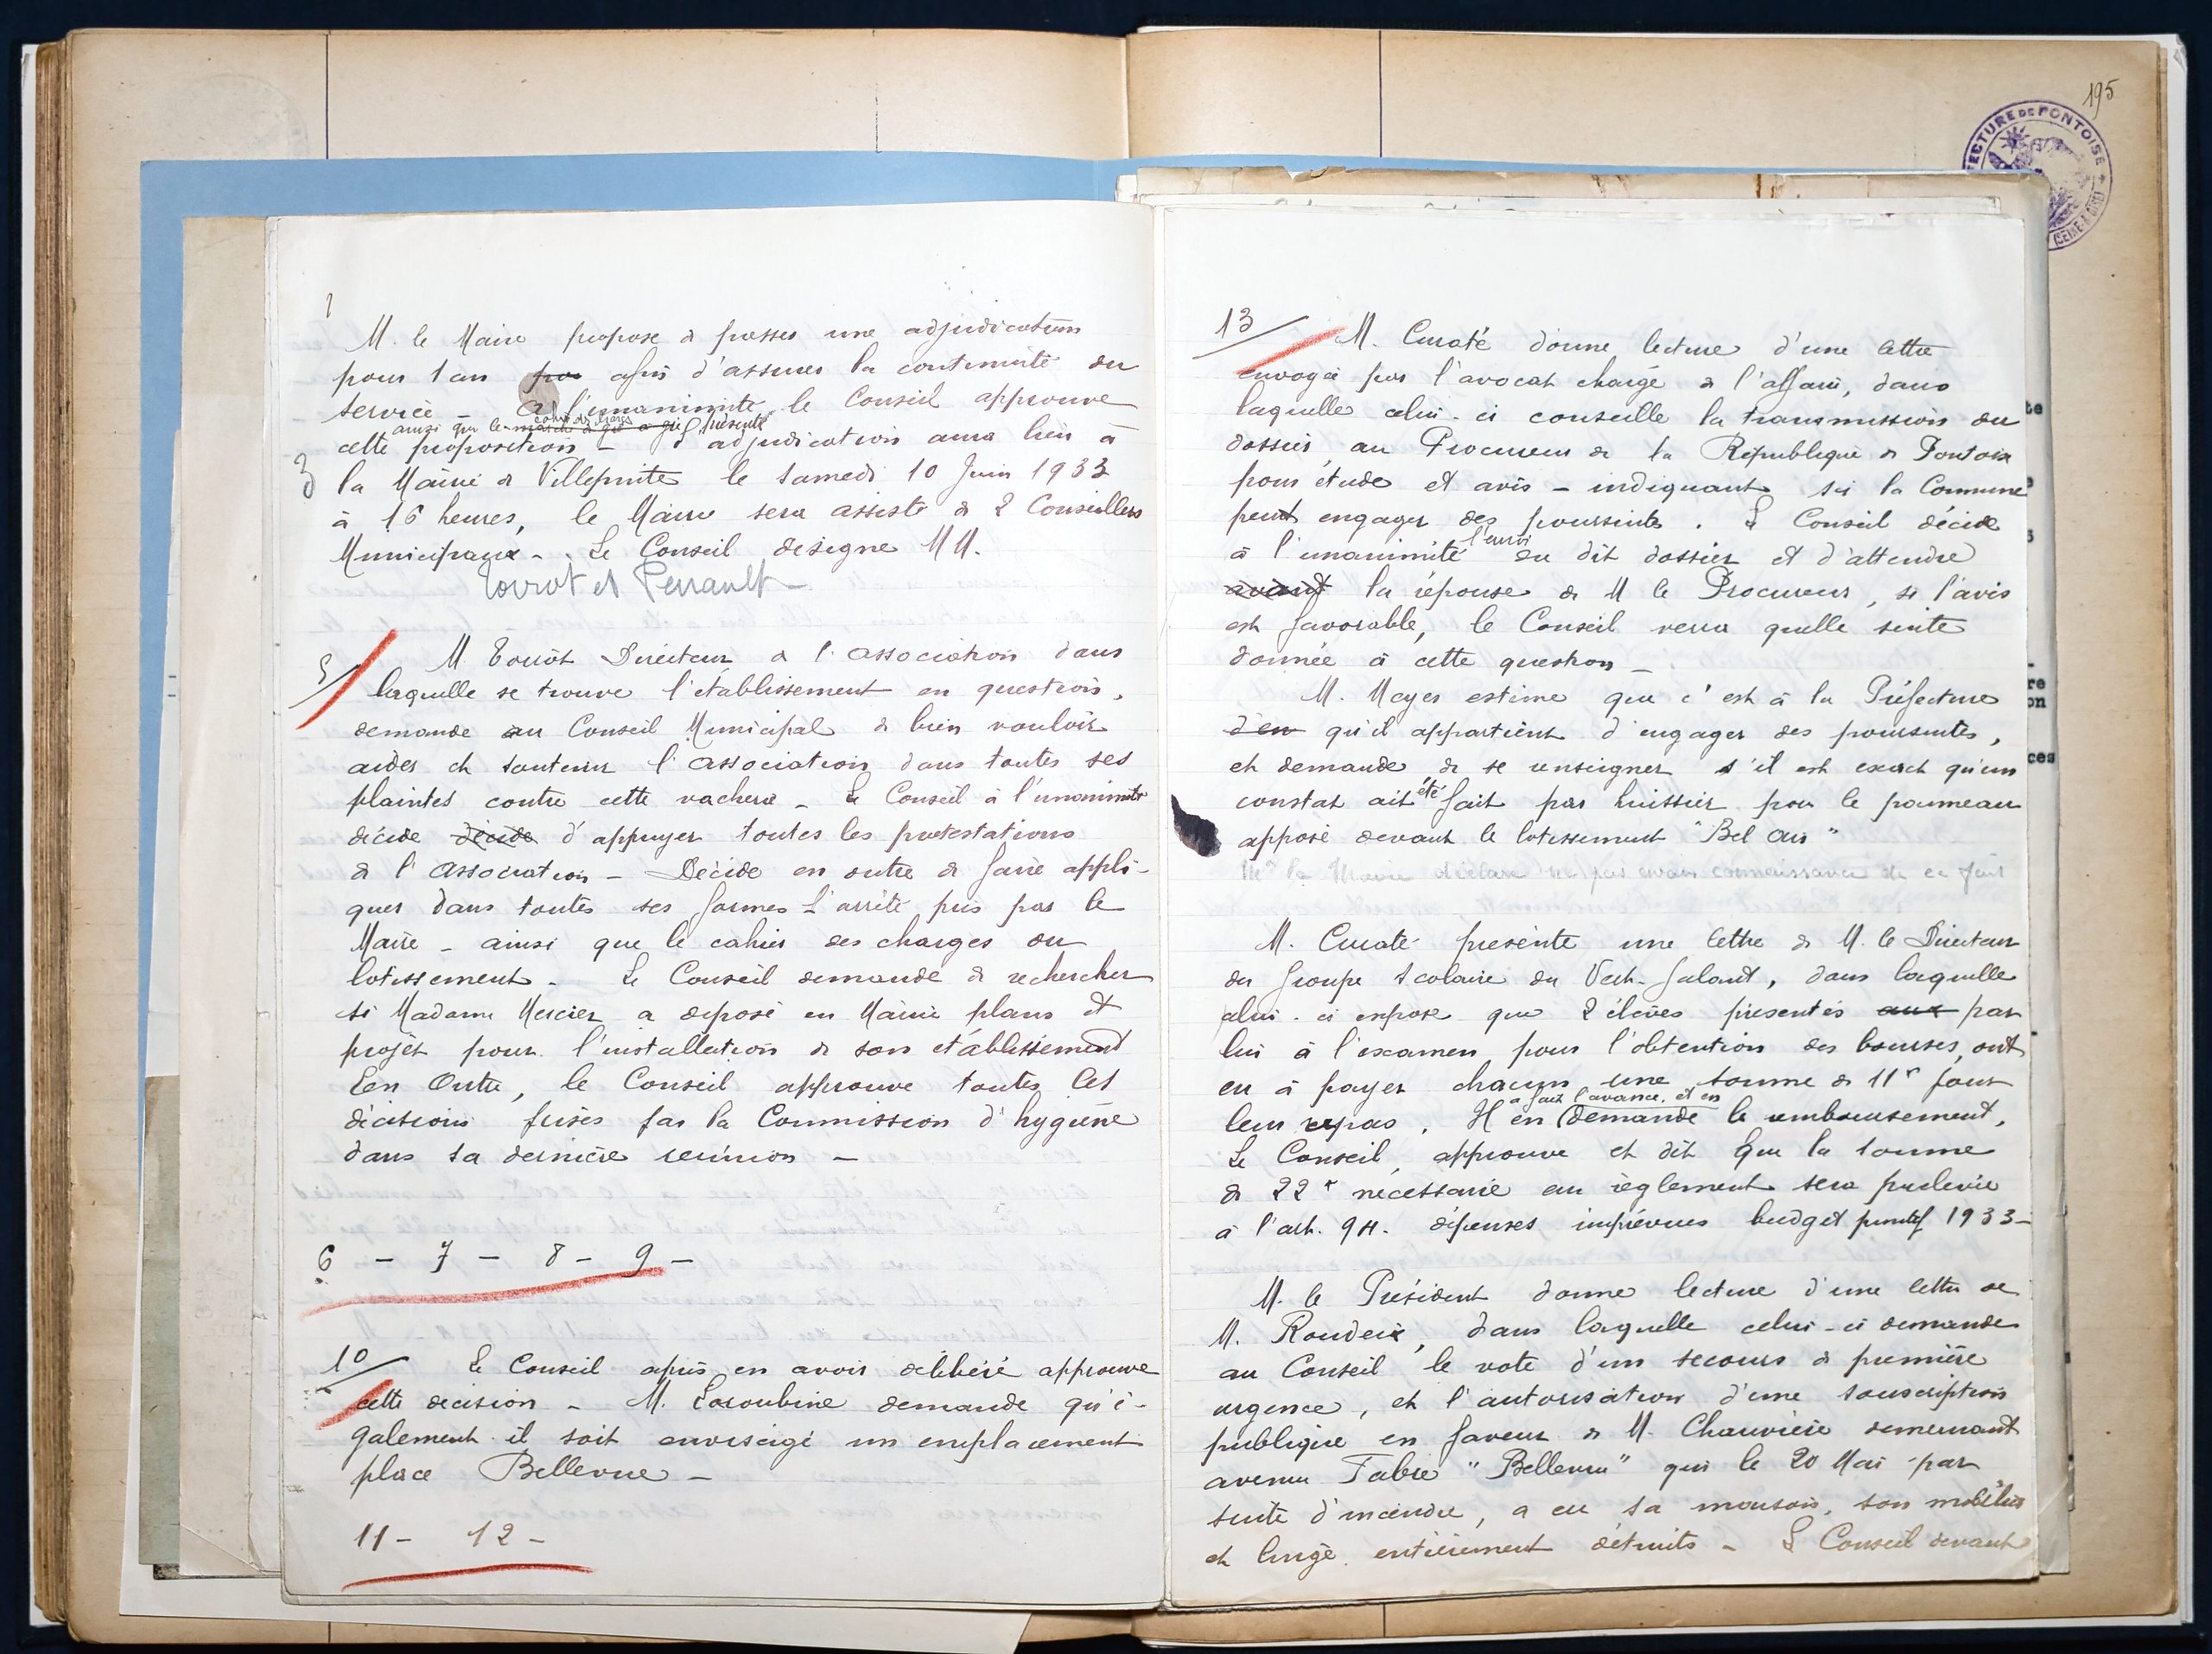 195
ECTURE DE PONTOISE
M. le Maire propose de passer une adjudication
pour 1 an pou afin d'assurer la continuité du
service - A l'unanimité le Conseil approuve
ainsi que le cahier des charges présenté
cette proposition - L'adjudication aura lieu à
3 la Mairie de Villepinte le Samedi 10 Juin 1933
à 16 heures, le Maire sera assisté de 2 Conseillers
Municipaux - Le Conseil désigne MM.
Torrot et Perrault -
5/ M. Torrot Directeur de l'association dans
laquelle se trouve l'établissement en question,
demande au Conseil Municipal de bien vouloir
aider et soutenir l'association dans toutes ses
plaintes contre cette vacherie - Le Conseil à l'unanimité
décide décide d'appuyer toutes les protestations
de l'association - Décide en outre de faire appli-
quer dans toutes ses formes L'arrêté pris par le
Maire - ainsi que le cahier des charges du
lotissement - Le Conseil demande de rechercher
si Madame Mercier a déposé en Mairie plans et
projet pour l'installation de son établissement
En Outre, le Conseil approuve toutes les
décisions prises par la Commission d'hygiène
dans sa dernière réunion -
6 - 7 - 8 - 9 -
10/ Le Conseil après en avoir délibéré approuve
cette décision - M. Laroubine demande qu'é-
galement il soit envisagé un emplacement
place Bellevue -
11 - 12 -
13/ M. Curaté donne lecture d'une lettre
envoyée par l'avocat chargé de l'affaire, dans
laquelle celui-ci conseille la transmission du
dossier, au Procureur de la République de Pontoise
pour étude et avis - indiquant si la Commune
peut engager des poursuites. Le Conseil décide
à l'unanimité l'envoi du dit dossier et d'attendre
avant la réponse de M le Procureur, si l'avis
est favorable, le Conseil verra quelle suite
donnée à cette question -
M. Mayer estime que c'est à la Préfecture
d'en qu'il appartient d'engager des poursuites,
et demande de se renseigner s'il est exact qu'un
constat ait été fait par huissier pour le panneau
apposé devant le lotissement "Bel Air"
Mr le Maire déclare ne pas avoir connaissance de ce fait
M. Curaté présente une lettre de M. le Directeur
du Groupe Scolaire du Vert-Galant, dans laquelle
celui-ci expose que 2 élèves présentés aux par
lui à l'examen pour l'obtention des bourses, ont
eu à payer chacun une somme de 11f pour
a fait l'avance, et en
leur repas. Il en demande le remboursement,
Le Conseil, approuve et dit Que la somme
de 22f nécessaire au règlement sera prélevée
à l'art. 94. dépenses imprévues budget primitif 1933-
M. le Président donne lecture d'une lettre de
M. Roudeix, dans laquelle celui-ci demande
au Conseil le vote d'un secours de première
urgence, et l'autorisation d'une souscription
publique en faveur de M. Chauvière demeurant
avenue Fabre "Bellevue" qui le 20 Mai par
suite d'incendie, a eu sa maison, son mobilier
et linge entièrement détruits - Le Conseil devant